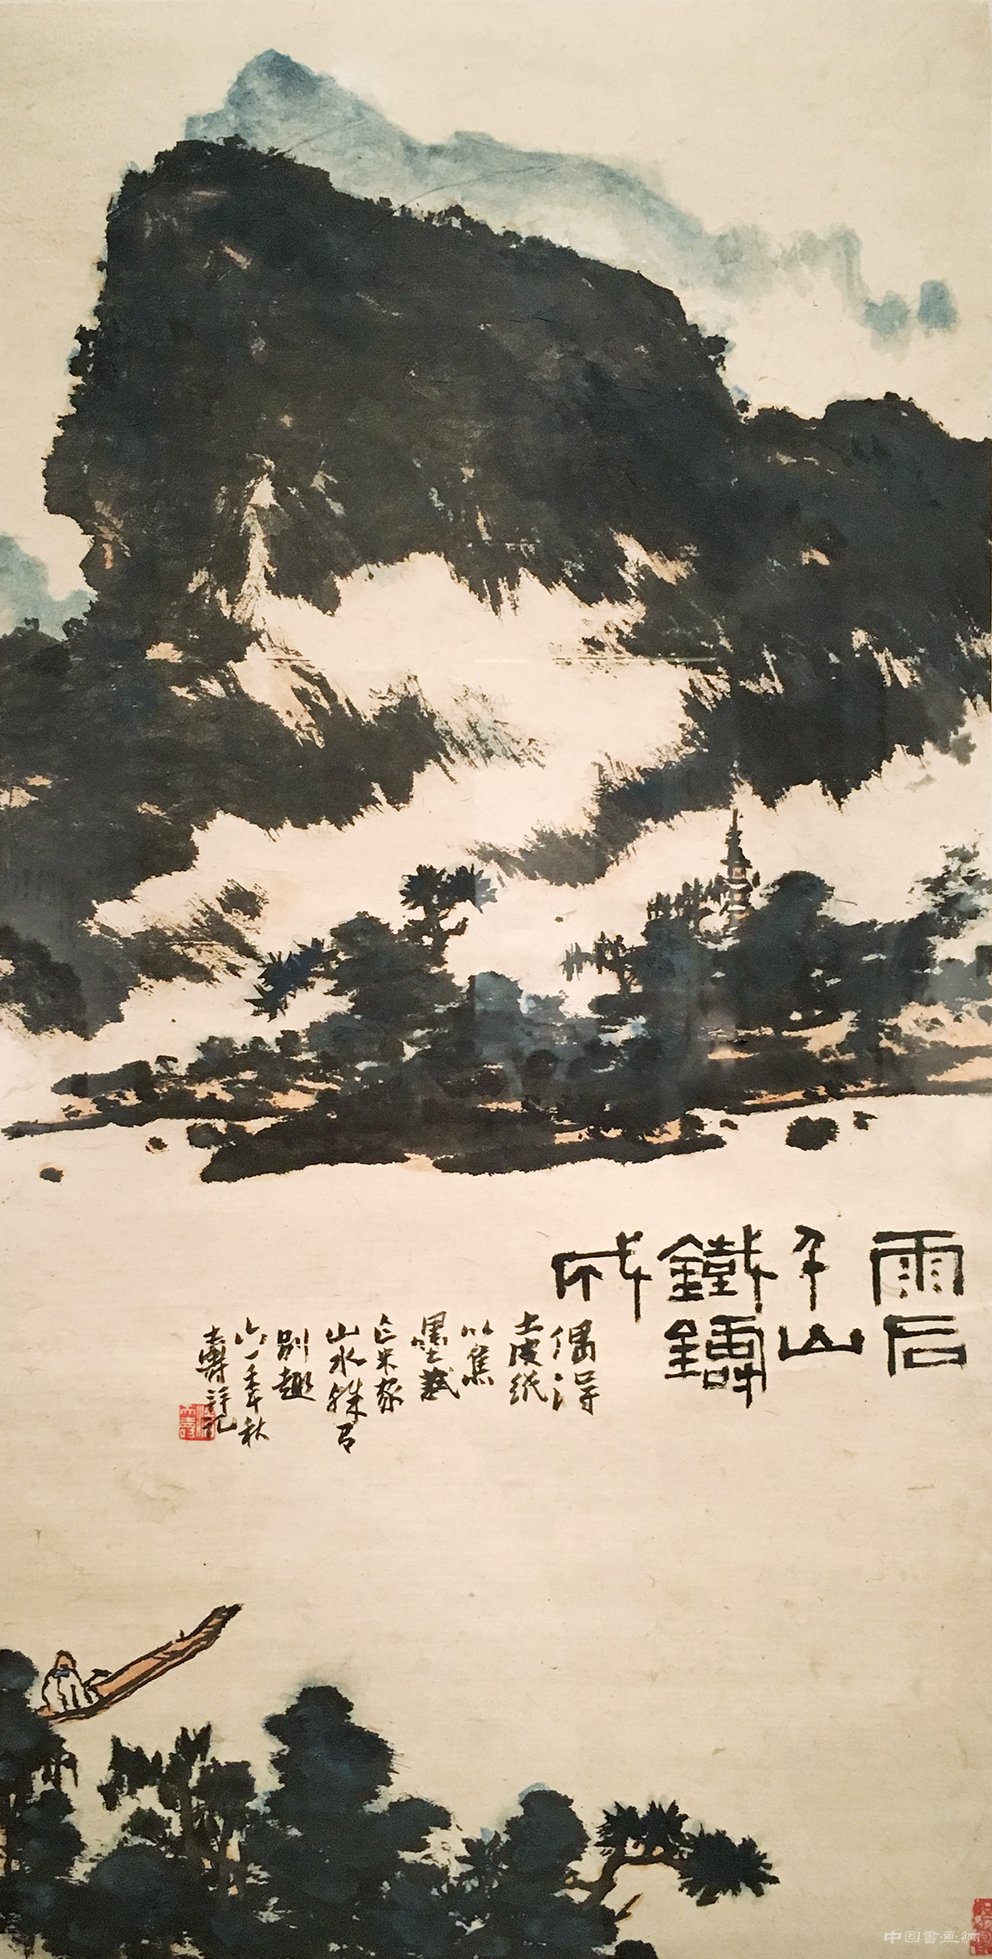 雨后
千山
鐵鑄
成
偶得
土皮紙
以焦
墨試
作米家
山水殊有
别趣
六一年秋
天壽并記
中国書画網